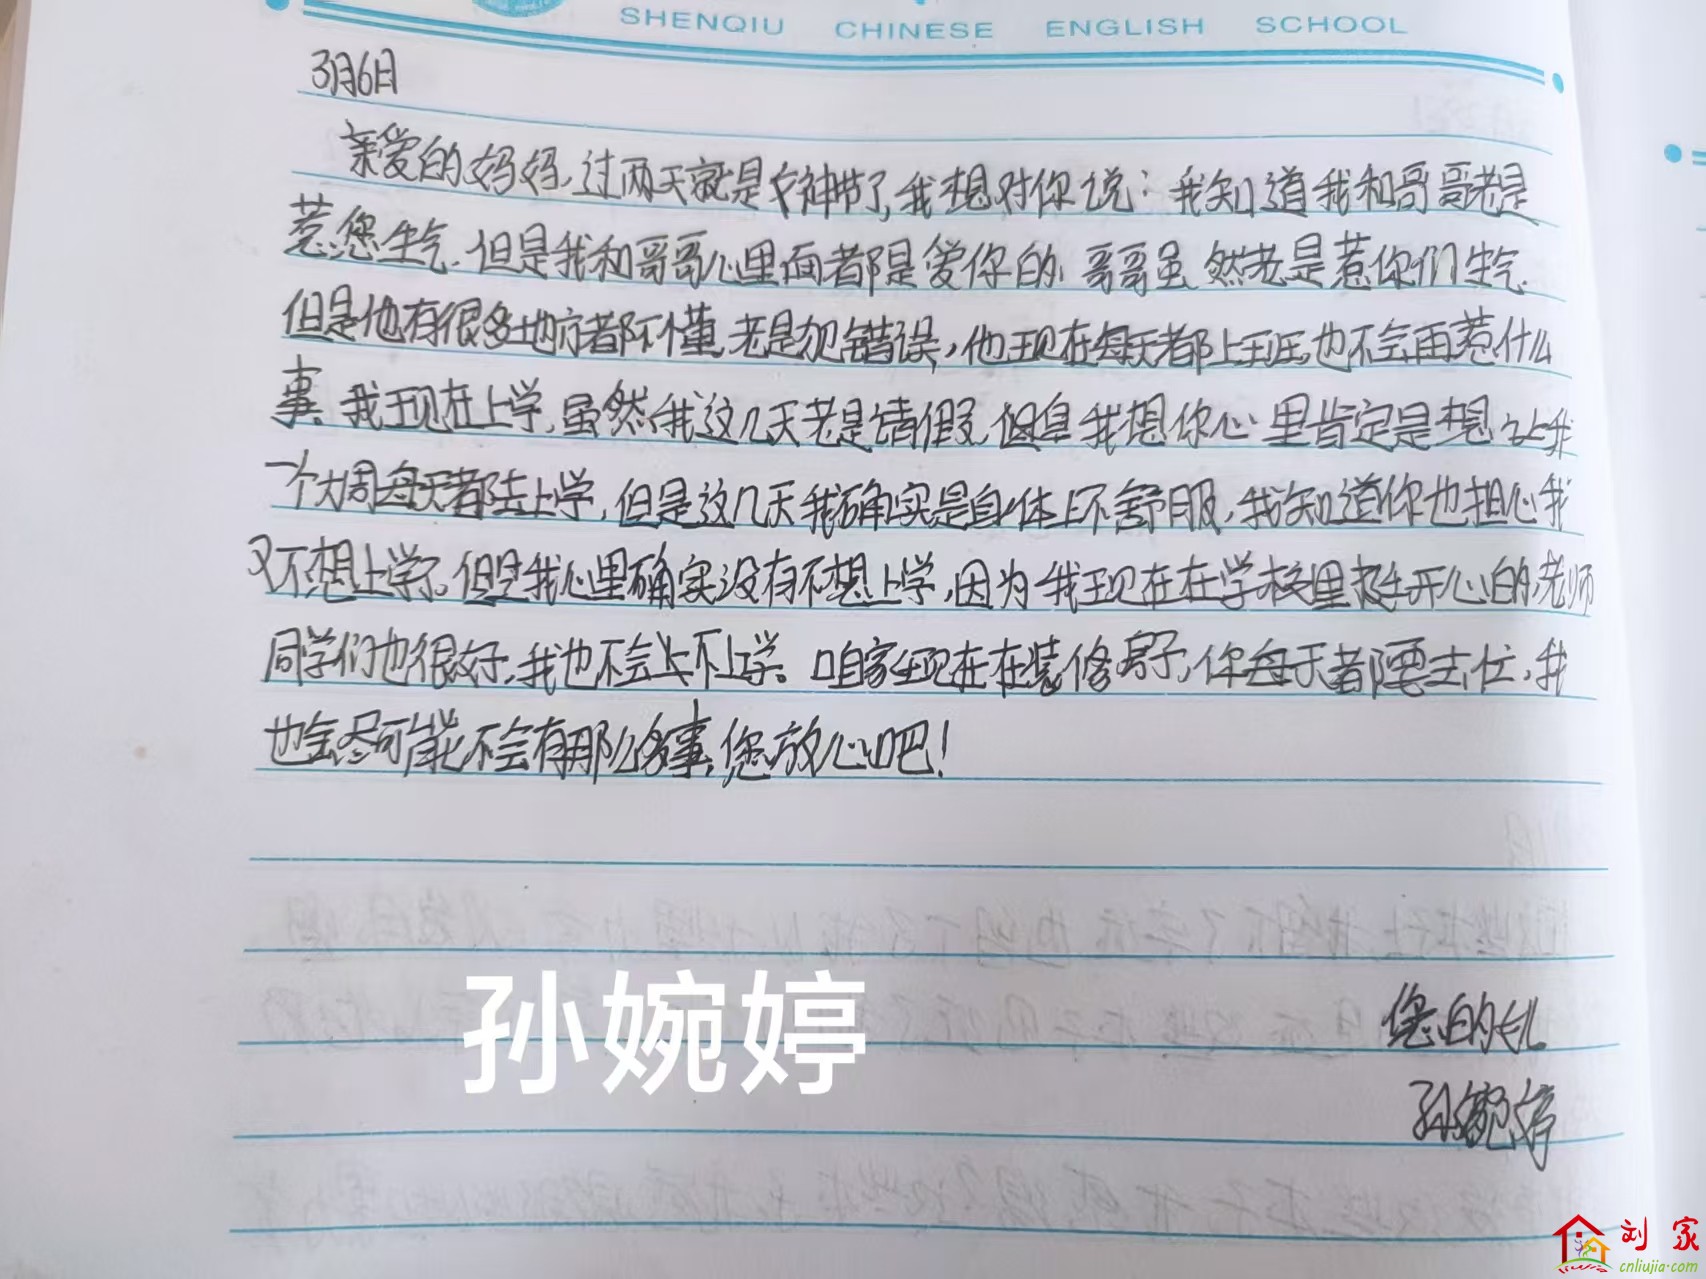 SHENQIU CHINESE ENGLISH SCHOOL
3月6日
亲爱的妈妈,过两天就是女神节了,我想对你说:我知道我和哥哥老是
惹您生气.但是我和哥哥心里面都是爱你的.哥哥虽然老是惹你们生气.
但是他有很多地方都不懂,老是犯错误,他现在每天都上班,也不会再惹什么
事.我现在上学,虽然我这几天老是请假,但是我想你心里肯定是想让我
一个大周每天都去上学,但是这几天我确实是身体上不舒服,我知道你也担心我
又不想上学了。但是我心里确实没有不想上学,因为我现在在学校里挺开心的,老师
同学们也很好,我也不会上不上学。咱家现在在装修房子,你每天都要去忙,我
也会尽可能不会有那么多事,您放心吧!
您的女儿
孙婉婷
孙婉婷
刘家
cnliujia.com